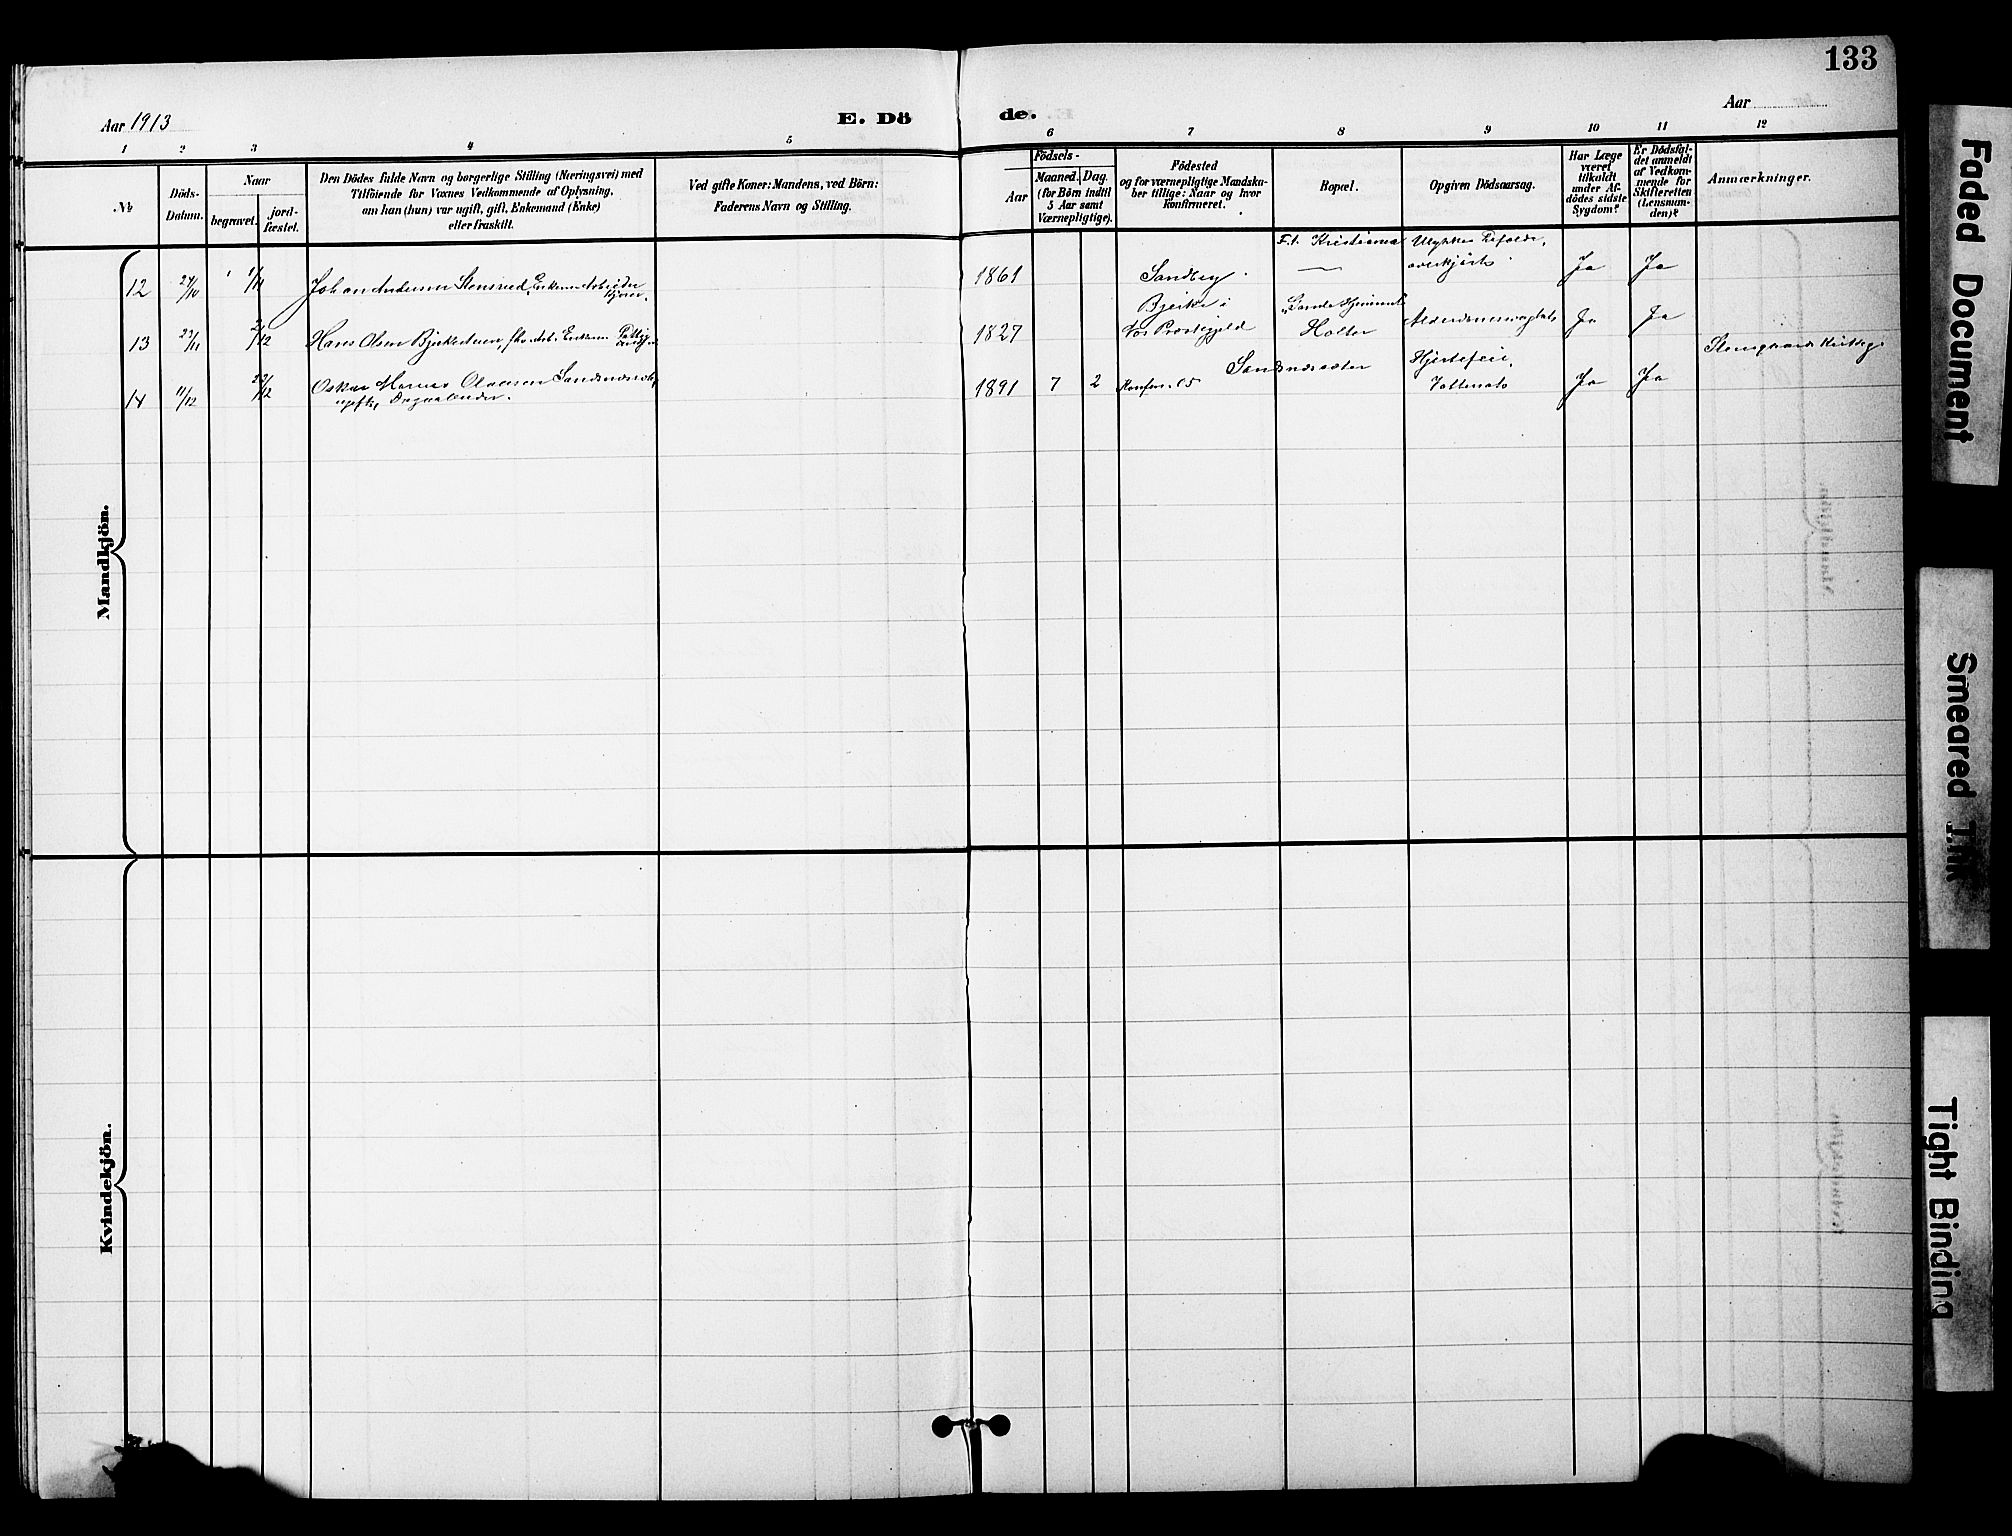 133
Aar 1913
E. Dö
de.
Aar
1 2 3 4 5 6 7 8 9 10 11 12
№
Döds-
Datum.
Naar
begravet.
jord-
fæstet.
Den Dödes fulde Navn og borgerlige Stilling (Næringsvei) med
Tilföiende for Voxnes Vedkommende af Oplysning,
om han (hun) var ugift, gift, Enkemand (Enke)
eller fraskilt.
Ved gifte Koner: Mandens, ved Börn:
Faderens Navn og Stilling.
Födsels-
Aar
Maaned. Dag.
(for Börn indtil
5 Aar samt
Værnepligtige).
Födested
og for værnepligtige Mandska-
ber tillige: Naar og hvor
konfirmeret.
Bopæl.
Opgiven Dödsaarsag.
Har Læge
været
tilkaldt
under Af-
dödes sidste
Sygdom?
Er Dödsfal-
det anmeldt
af Vedkom-
mende for
Skifteretten
(Lensman-
den)?
Anmærkninger.
Mandkjön.
12 27/10 1/11 Johan Andersen Stensrud, Enkem. Arbeider 1861 Sandbøg F.t. Kristiania Ulykkestilfælde, overkjørt Ja Ja
13 23/11 2/12 Hans Olsen Bjerketuen, Enkem. 1827 Bjerke i Vos Præstegjeld Gamlehjemmet Holter Alderdomssvaghet Ja Ja
14 11/12 23/12 Oskar Olausen Sandsnæssæter, ugift, 1891 7 2 Konfirm. 05 Sandsnæssæter Hjertefeil, Ja Ja
Kvindekjön.
Faded Document
Smeared Ink
Tight Binding